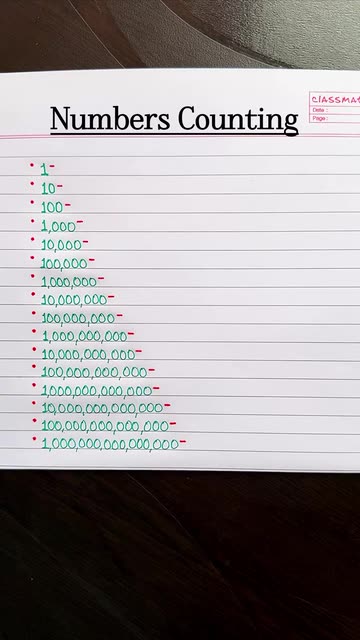 CLASSMA
Date :
Page :
Numbers Counting
• 1-
• 10-
• 100-
• 1,000-
• 10,000-
• 100,000-
• 1,000,000-
• 10,000,000-
• 100,000,000-
• 1,000,000,000-
• 10,000,000,000-
• 100,000,000,000-
• 1,000,000,000,000-
• 10,000,000,000,000-
• 100,000,000,000,000-
• 1,000,000,000,000,000-